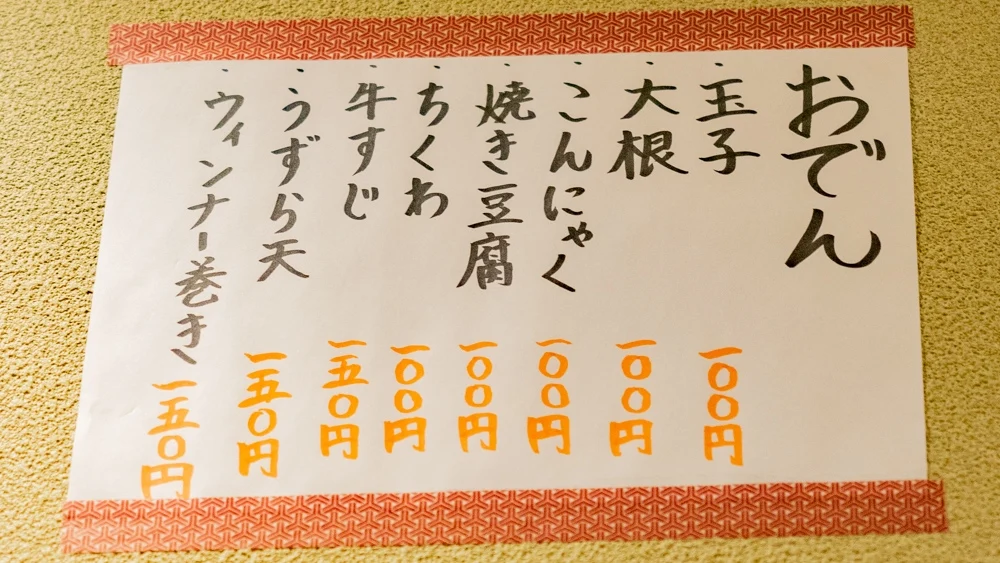 おでん
・玉子 一〇〇円
・大根 一〇〇円
・こんにゃく 一〇〇円
・焼き豆腐 一〇〇円
・ちくわ 一〇〇円
・牛すじ 一五〇円
・うずら天 一五〇円
・ウィンナー巻き 一五〇円